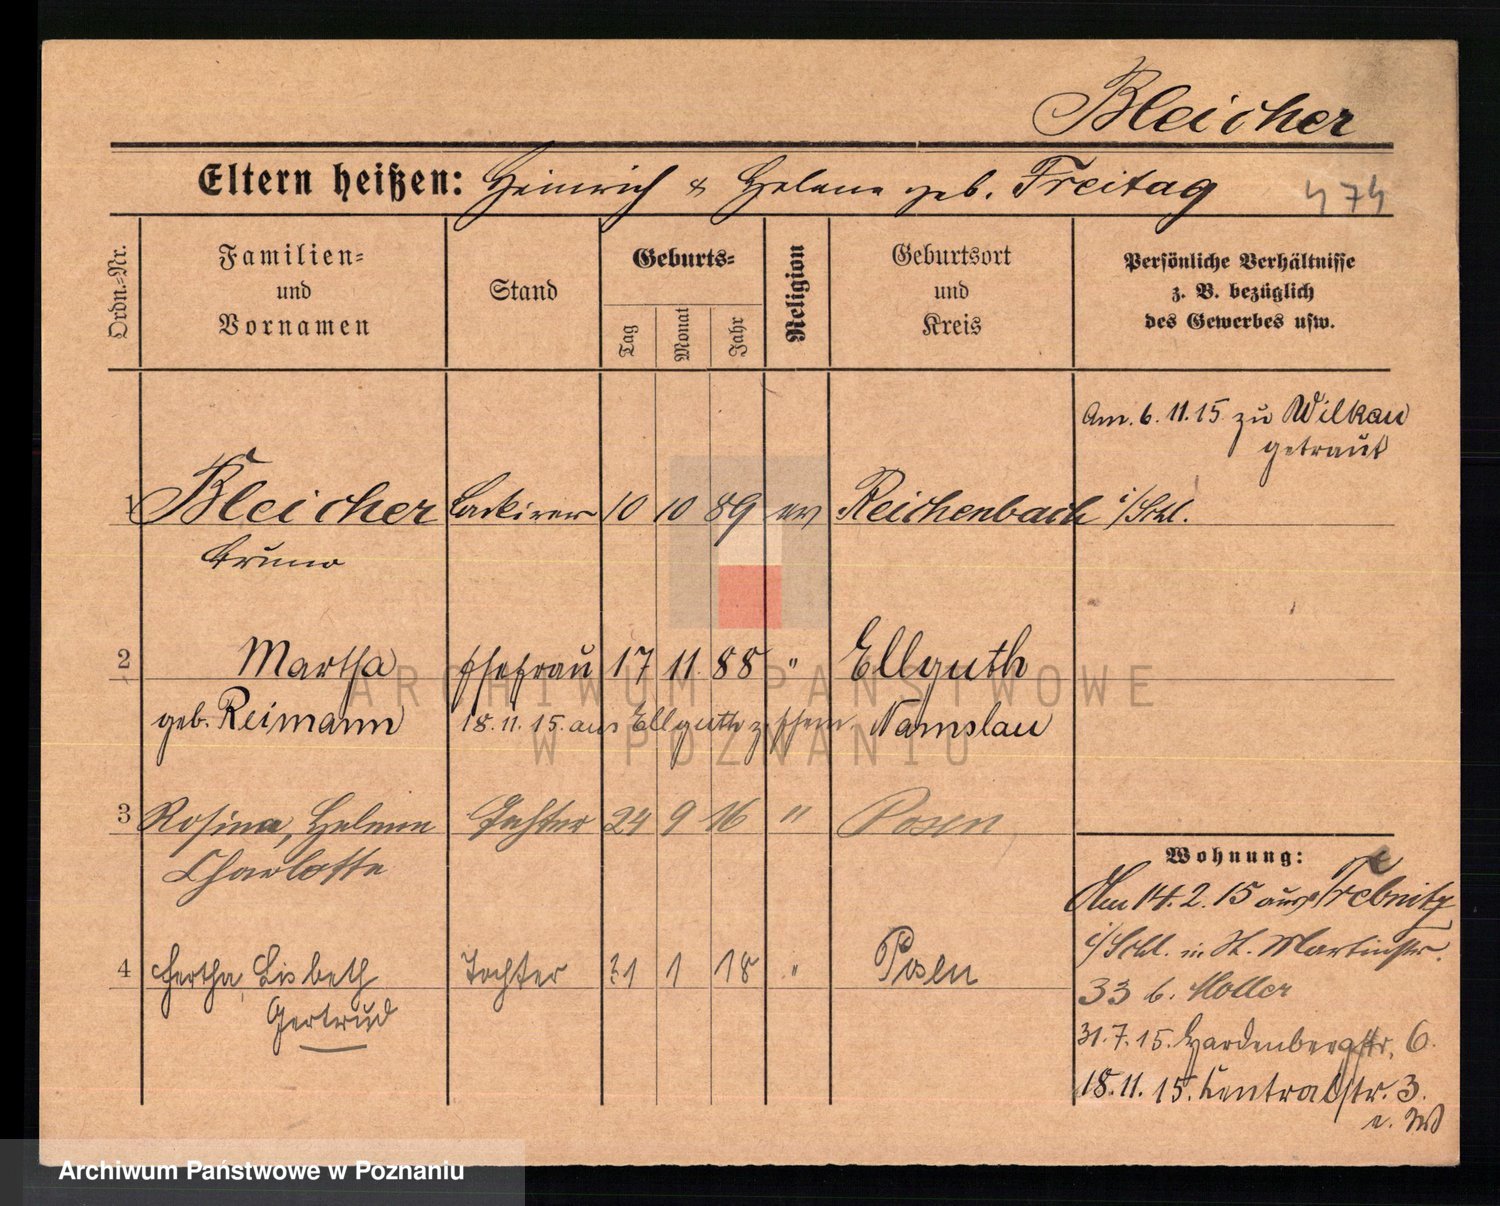 Bleicher
Eltern heißen: Heinrich & Helene geb. Freitag
474
Ordn.=Nr.
Familien=
und
Vornamen
Stand
Geburts=
Tag
Monat
Jahr
Religion
Geburtsort
und
Kreis
Persönliche Verhältnisse
z. B. bezüglich
des Gewerbes usw.
Am. 6. 11. 15 zu Wilkau
getraut
1 Bleicher Lackirer 10 10 89 ev Reichenbach i/Schl.
Bruno
2 Martha Ehefrau 17 11 88 " Ellguth
geb. Reimann 18. 11. 15. aus Ellguth z. Ehem. Namslau
3 Rosina, Helene Tochter 24 9 16 " Posen
Charlotte
4 Hertha, Lisbeth Tochter 31 1 18 " Posen
Gertrud
Wohnung:
Am 14. 2. 15 aus Trebnitz
i/Schl. in St. Martinstr.
33 b. Moller
31. 7. 15. Hardenbergstr. 6.
18. 11. 15. Centralstr. 3.
ARCHIWUM PAŃSTWOWE
W POZNANIU
Archiwum Państwowe w Poznaniu